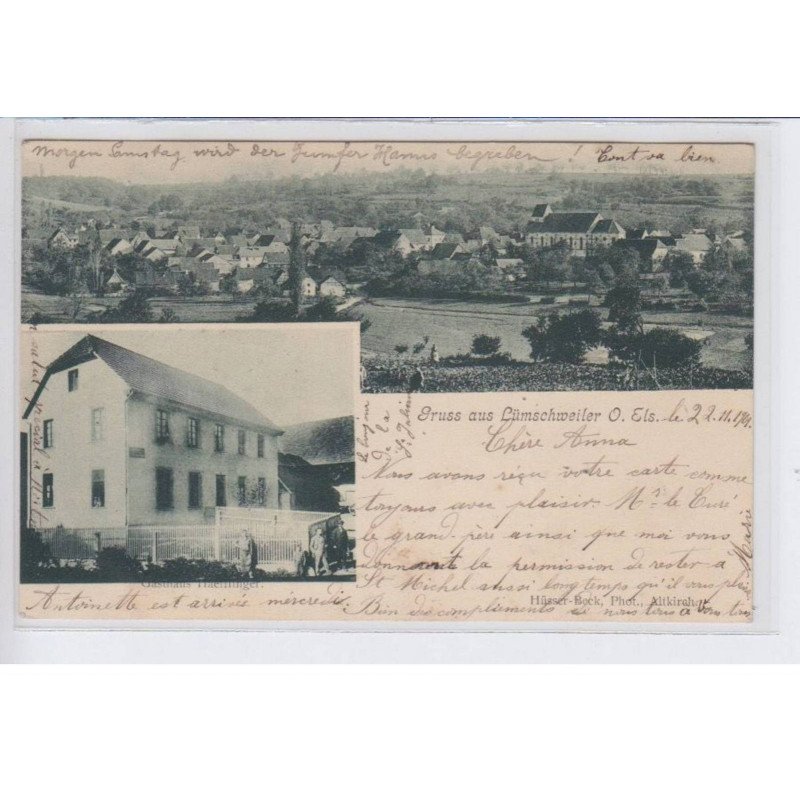 Morgen Samstag wird der Jumfer Hanns begreben! Tout va bien
Gruss aus Lümschweiler O. Els. le 22.11.1901.
Chère Anna
Nous avons réçu votre carte comme
toujours avec plaisir. Mr. le Curé
le grand père ainsi que moi vous
donnont la permission de rester a
St Michel aussi long temps qu'il vous plait
Bien des compliements de nous tous a vous tous
Marie
Hüsser-Beck, Phot., Altkirch
Gasthaus Haeffinger.
Antoinette est arrivée mercredi.
de la